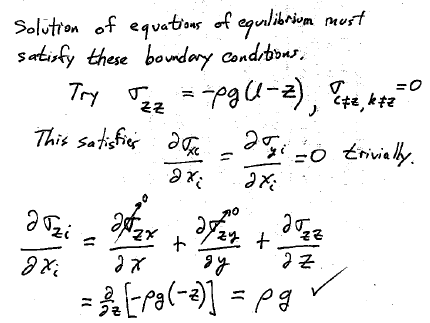 Solution of equations of equilibrium must
satisfy these boundary conditions.
Try σ_zz = -ρg(l-z), σ_{i≠z, k≠z} = 0
This satisfies ∂σ_xi/∂x_i = ∂σ_yi/∂x_i = 0 trivially.
∂σ_zi/∂x_i = ∂σ_zx/∂x → 0 + ∂σ_zy/∂y → 0 + ∂σ_zz/∂z
= ∂/∂z [-ρg(-z)] = ρg ✓